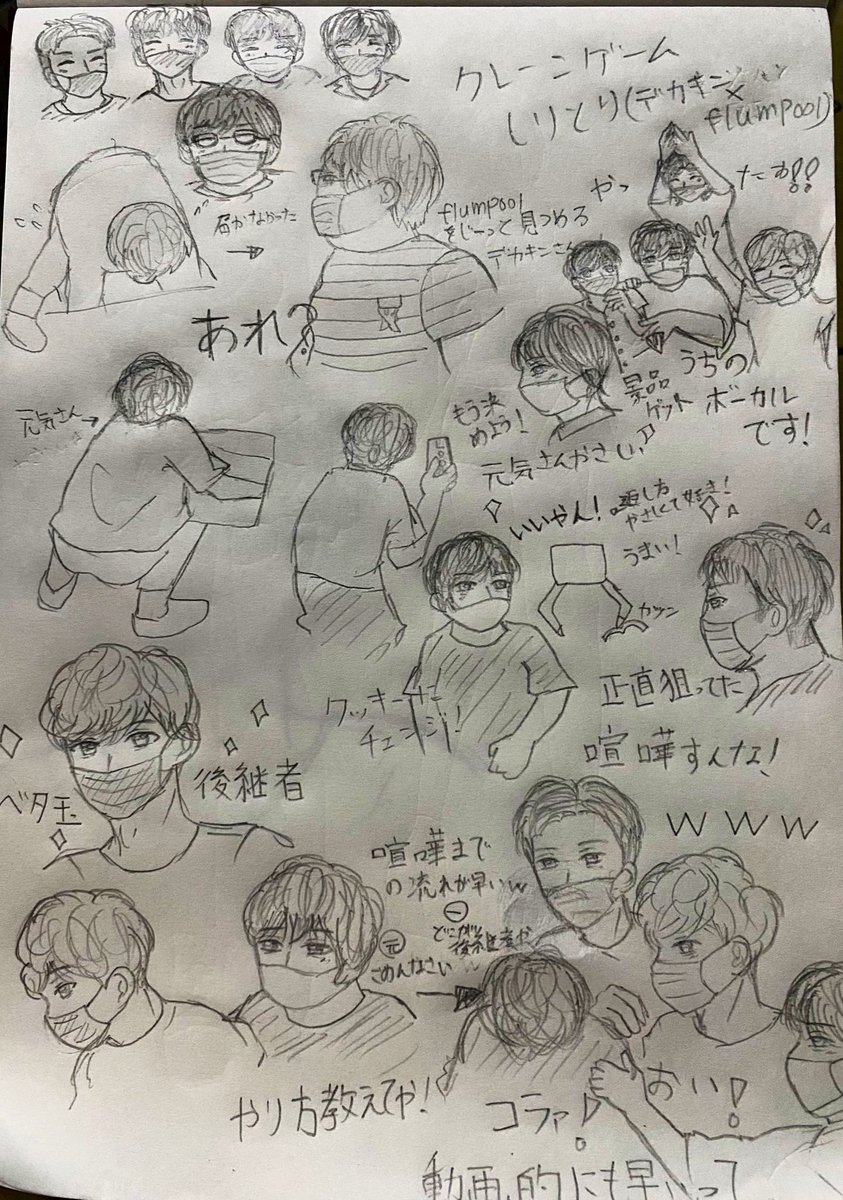 クレーンゲーム
しりとり(デカキン×
flumpool)
届かなかった
flumpool
をじーっと見つめる
デカキンさん
やっ
たー!!
あれ?
元気さん
景品
ゲット
うちの
ボーカル
です!
もう決
めよう!
元気さんやさしい
いいやん!
返し方
やさしくて好き!
うまい!
カツン
クッキーに
チェンジ!
正直狙ってた
喧嘩すんな!
ベタ玉
後継者
www
喧嘩まで
の流れが早いw
一
どこが
後継者や
元
ごめんなさい
やり方教えてや!
コラァ!
おい!
動画的にも早いって